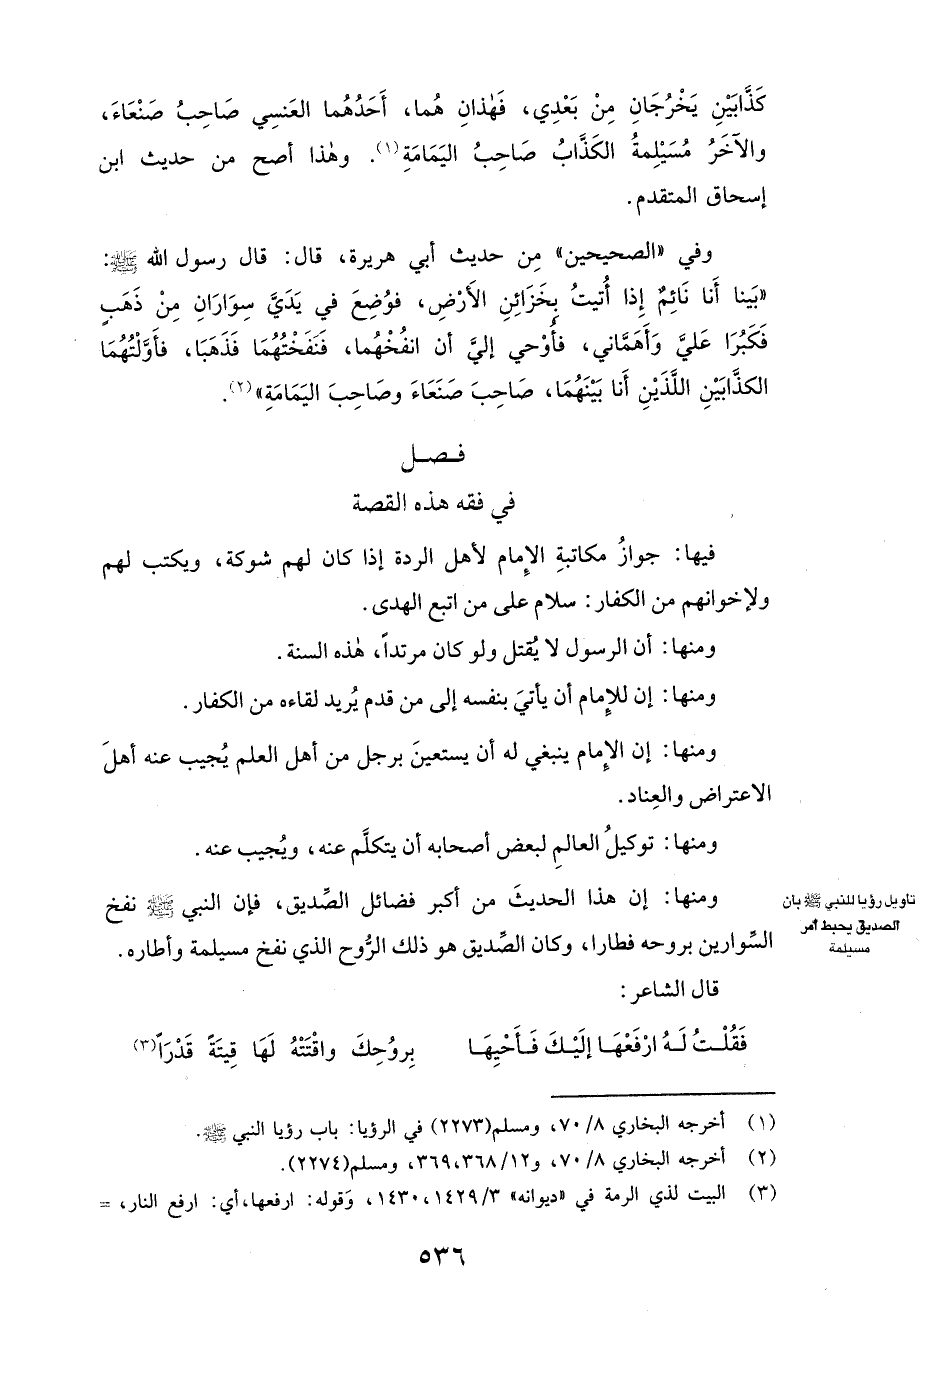 كَذَّابَيْنِ يَخْرُجَانِ مِنْ بَعْدِي، فَهٰذانِ هُما، أَحَدُهُما العَنسِي صَاحِبُ صَنْعَاءَ،
والآخَرُ مُسَيْلِمةُ الكَذَّابُ صَاحِبُ اليَمَامَةِ(١). وهٰذا أصح من حديث ابن
إسحاق المتقدم.
وفي «الصحيحين» مِن حديث أبي هريرة، قال: قال رسول الله ﷺ:
«بَينا أَنا نَائِمٌ إذا أُتيتُ بِخَزائِنِ الأَرْضِ، فوُضِعَ في يَدَيَّ سِوَارَانِ مِنْ ذَهَبٍ
فَكَبُرَا عَليَّ وَأَهَمَّاني، فأُوْحي إليَّ أن انفُخْهُما، فَنَفَخْتُهُمَا فَذَهَبَا، فأَوَّلْتُهُمَا
الكذَّابَيْنِ اللَّذَيْنِ أَنا بَيْنَهُمَا، صَاحِبَ صَنَعَاءَ وصَاحِبَ اليَمَامَةِ»(٢).
فـصـل
في فقه هذه القصة
فيها: جوازُ مكاتبةِ الإمام لأهل الردة إذا كان لهم شوكة، ويكتب لهم
ولإخوانهم من الكفار: سلام على من اتبع الهدى.
ومنها: أن الرسول لا يُقتل ولو كان مرتداً، هٰذه السنة.
ومنها: إن للإمام أن يأتيَ بنفسه إلى من قدم يُريد لقاءه من الكفار.
ومنها: إن الإمام ينبغي له أن يستعينَ برجل من أهل العلم يُجيب عنه أهلَ
الاعتراض والعِناد.
ومنها: توكيلُ العالمِ لبعض أصحابه أن يتكلَّم عنه، ويُجيب عنه.
ومنها: إن هذا الحديثَ من أكبر فضائل الصِّديق، فإن النبي ﷺ نفخ
السِّوارين بروحه فطارا، وكان الصِّديق هو ذلك الرُّوح الذي نفخ مسيلمة وأطاره.
تأويل رؤيا للنبي ﷺ بان
الصديق يحبط أمر
مسيلمة
قال الشاعر:
فَقُلْـتُ لَـهُ ارْفَعْهَـا إِلَيْـكَ فَـأَحْيِهَـا بِروُحِكَ واقْتَتْهُ لَهَا قِيتَةً قَدْرَاً(٣)
(١) أخرجه البخاري ٧٠/٨، ومسلم(٢٢٧٣) في الرؤيا: باب رؤيا النبي ﷺ.
(٢) أخرجه البخاري ٧٠/٨، و٣٦٩،٣٦٨/١٢، ومسلم(٢٢٧٤).
(٣) البيت لذي الرمة في «ديوانه» ١٤٣٠،١٤٢٩/٣، وَقوله: ارفعها،أي: ارفع النار، =
٥٣٦